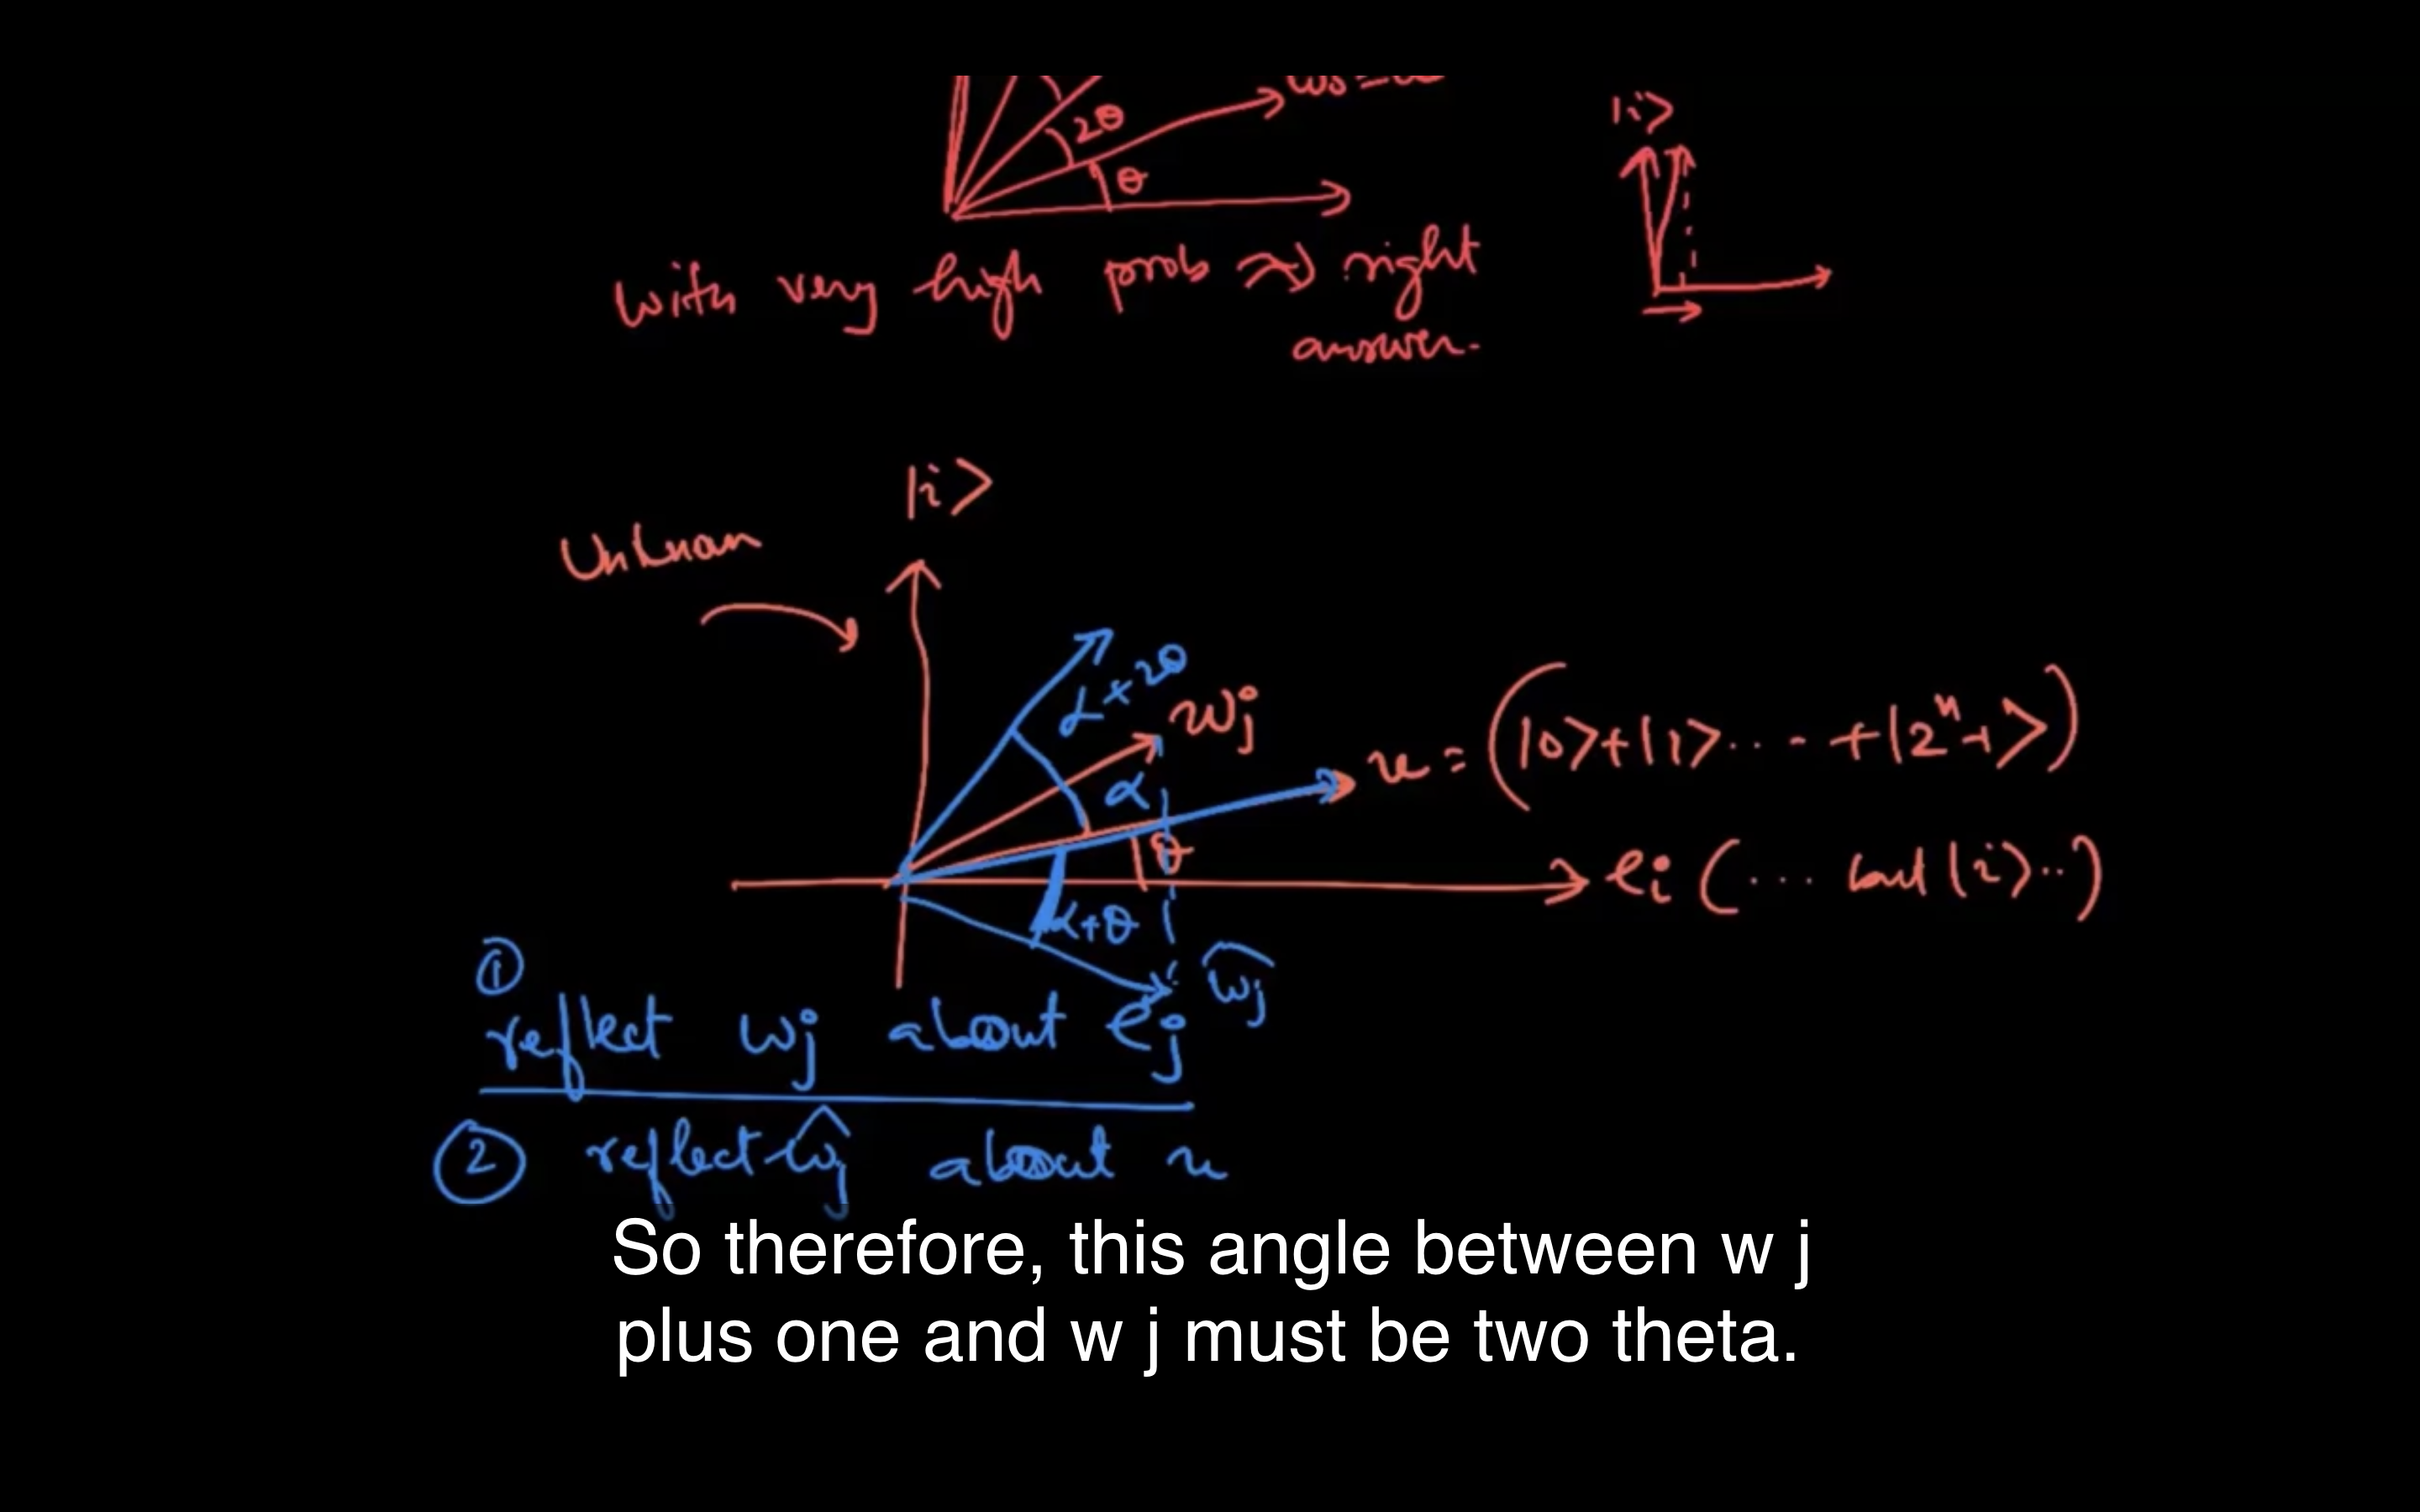 2θ
θ
|i>
with very high prob ≈> right
answer.
|i>
α + 2θ
wj
α
u = (|0>+|1>... - +|2ⁿ-1>)
θ
ei (... but |i>..)
α+θ
ŵj
①
reflect wj about ej
② reflect ŵj about u
So therefore, this angle between w j
plus one and w j must be two theta.